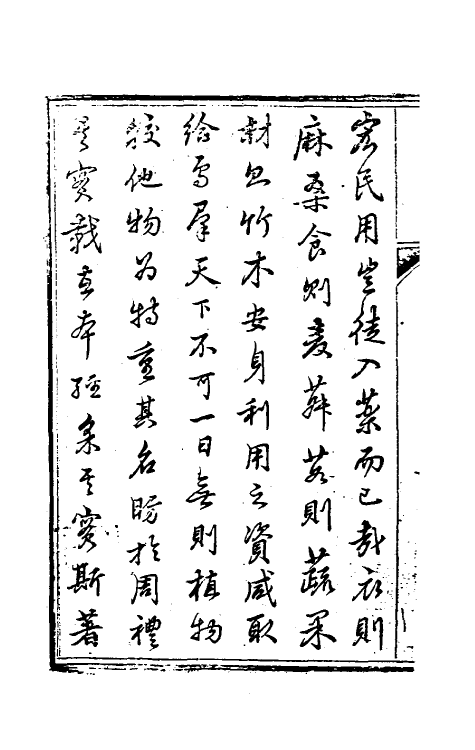 民用豈徒入藥而已哉衣則
麻桑食則麥菽茹則蔬果
材則竹木安身利用之資咸取
給焉羣天下不可一日無則植物
較他物為特重其名昉於周禮
其實載在本經其實斯著